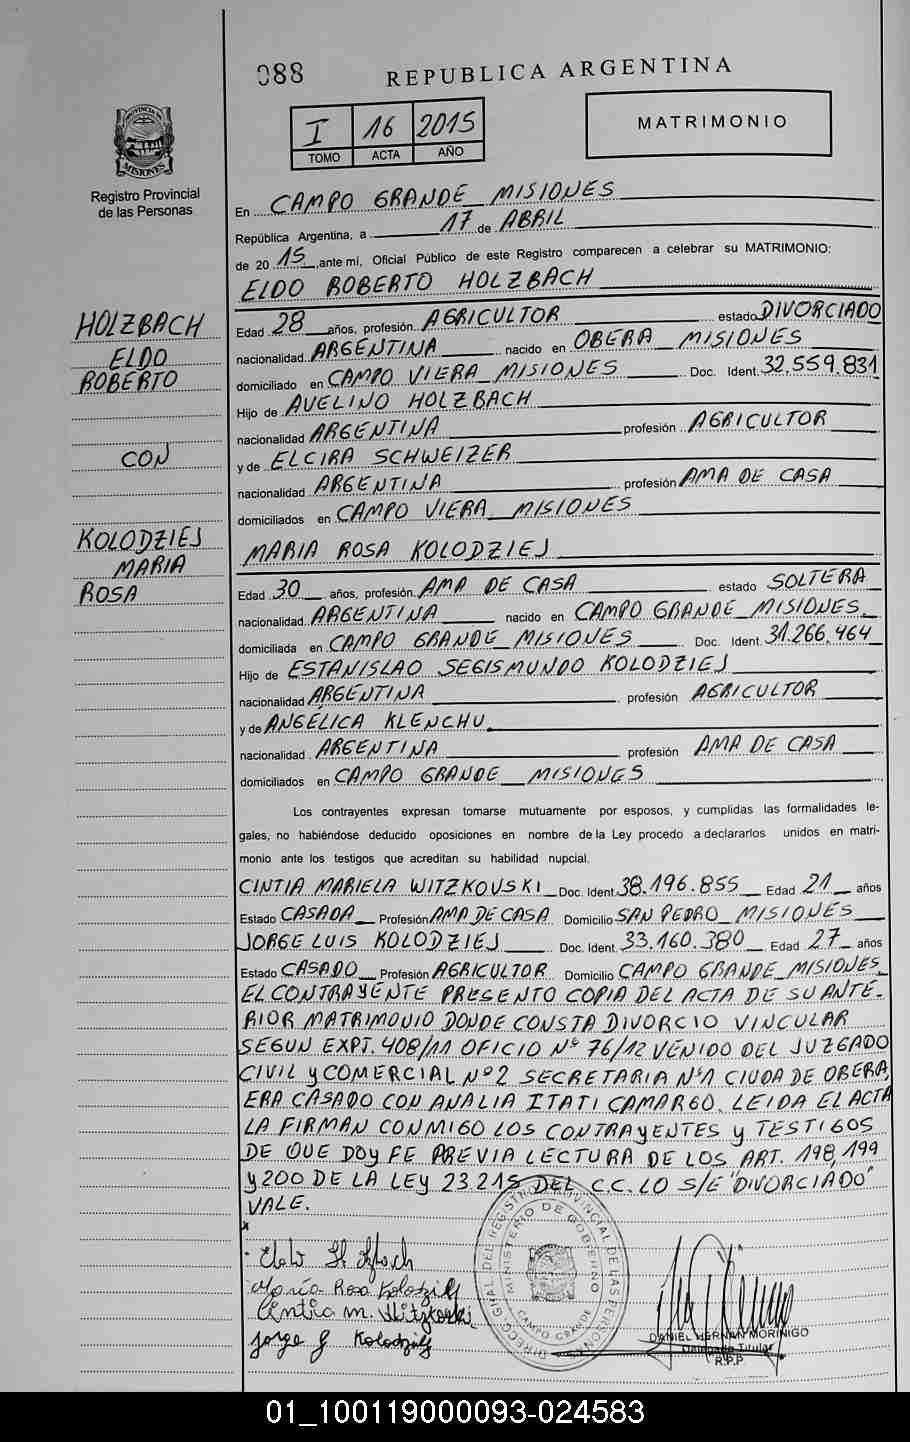 088
REPUBLICA ARGENTINA
I 16 2015
TOMO ACTA AÑO
MATRIMONIO
PROVINCIA DE
MISIONES
Registro Provincial
de las Personas
En CAMPO GRANDE MISIONES
República Argentina, a 17 de ABRIL
de 20 15, ante mí, Oficial Público de este Registro comparecen a celebrar su MATRIMONIO:
ELDO ROBERTO HOLZBACH
HOLZBACH
ELDO
ROBERTO
CON
KOLODZIEJ
MARIA
ROSA
Edad 28 años, profesión AGRICULTOR estado DIVORCIADO
nacionalidad ARGENTINA nacido en OBERA MISIONES
domiciliado en CAMPO VIERA MISIONES Doc. Ident. 32.559.831
Hijo de AVELINO HOLZBACH
nacionalidad ARGENTINA profesión AGRICULTOR
y de ELCIRA SCHWEIZER
nacionalidad ARGENTINA profesión AMA DE CASA
domiciliados en CAMPO VIERA MISIONES
MARIA ROSA KOLODZIEJ
Edad 30 años, profesión AMA DE CASA estado SOLTERA
nacionalidad ARGENTINA nacido en CAMPO GRANDE MISIONES
domiciliada en CAMPO GRANDE MISIONES Doc. Ident. 31.266.464
Hijo de ESTANISLAO SEGISMUNDO KOLODZIEJ
nacionalidad ARGENTINA profesión AGRICULTOR
y de ANGÉLICA KLENCHU
nacionalidad ARGENTINA profesión AMA DE CASA
domiciliados en CAMPO GRANDE MISIONES
Los contrayentes expresan tomarse mutuamente por esposos, y cumplidas las formalidades le-
gales, no habiéndose deducido oposiciones en nombre de la Ley procedo a declararlos unidos en matri-
monio ante los testigos que acreditan su habilidad nupcial.
CINTIA MARIELA WITZKOVSKI Doc. Ident. 38.196.855 Edad 21 años
Estado CASADA Profesión AMA DE CASA Domicilio SAN PEDRO MISIONES
JORGE LUIS KOLODZIEJ Doc. Ident. 33.160.380 Edad 27 años
Estado CASADO Profesión AGRICULTOR Domicilio CAMPO GRANDE MISIONES
EL CONTRAYENTE PRESENTO COPIA DEL ACTA DE SU ANTE-
RIOR MATRIMONIO DONDE CONSTA DIVORCIO VINCULAR
SEGUN EXPT. 408/11 OFICIO Nº 76/12 VENIDO DEL JUZGADO
CIVIL y COMERCIAL Nº2 SECRETARIA Nº1 CIUDA DE OBERA,
ERA CASADO CON ANALIA ITATI CAMARGO. LEIDA EL ACTA
LA FIRMAN CONMIGO LOS CONTRAYENTES y TESTIGOS
DE QUE DOY FE PREVIA LECTURA DE LOS ART. 198,199
y 200 DE LA LEY 23215 DEL C.C. LO S/E "DIVORCIADO"
VALE.
Maria Rosa Kolodziej
Cintia m. Witzkoski
Jorge Kolodziej
DIRECC. GRAL. DEL REGISTRO PROVINCIAL DE LAS PERSONAS
MINISTERIO DE GOBIERNO
CAMPO GRANDE
DANIEL HERNAN MORINIGO
Delegado Titular
R.P.P.
01_100119000093-024583